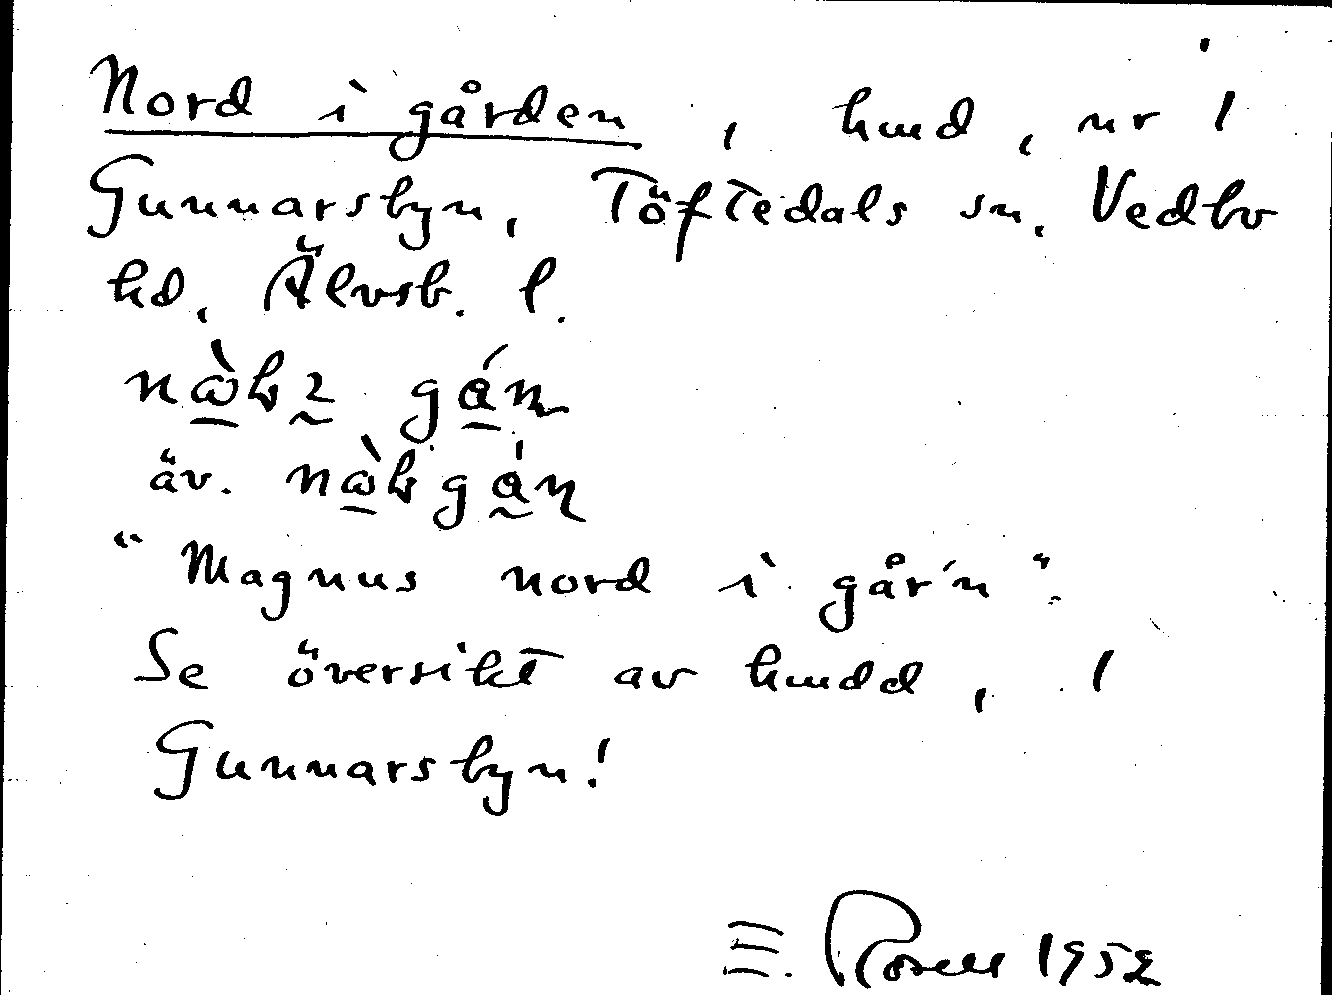 Nord i gården, hmd, nr 1
Gunnarsbyn, Töftedals sn. Vedbo
hd, Älvsb. l.
äv.
"Magnus nord i går'n".
Se översikt av hmdd, 1
Gunnarsbyn!
E. Rosell 1952